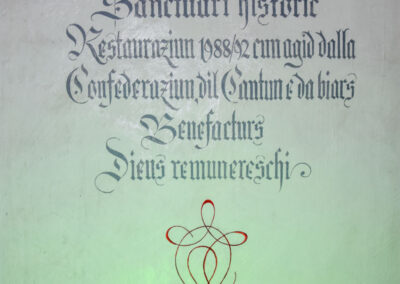 Sanctuari historic
Restauraziun 1988/92 cun agid dalla
Confederaziun, dil Cantun e da biars
Benefacturs
Dieus remunereschi